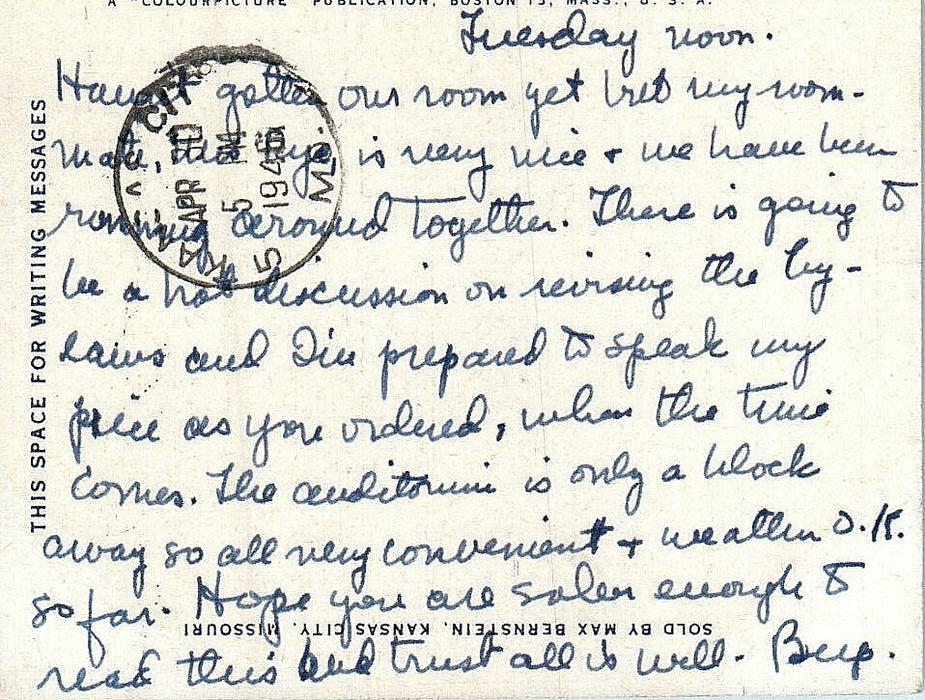 A "COLOURPICTURE" PUBLICATION, BOSTON 15, MASS., U. S. A.
Tuesday noon.
Haven't gotten our room yet but my room-
mate, is very nice + we have been
running around together. There is going to
be a hot discussion on revising the by-
laws and I'm prepared to speak my
piece as you ordered, when the time
comes. The auditorium is only a block
away so all very convenient + weather O.K.
so far. Hope you are sober enough to
read this and trust all is well.
THIS SPACE FOR WRITING MESSAGES
SOLD BY MAX BERNSTEIN, KANSAS CITY, MISSOURI
KANSAS CITY
APR 30
5 PM
1946
MO.
5